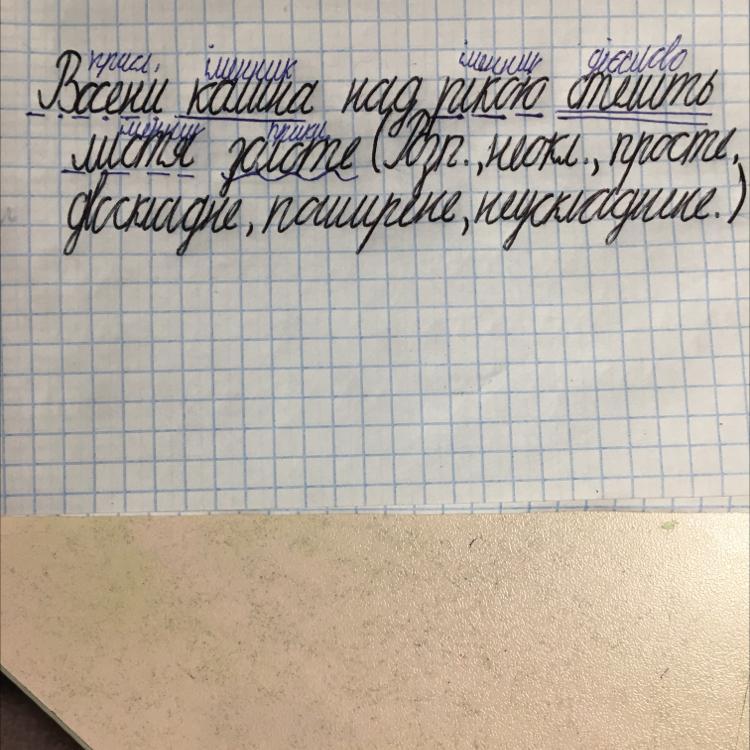 присл. іменник іменник дієслово
Восени калина над рікою стелить
іменник прикм.
листя золоте (Розп., неокл., просте,
двоскладне, поширене, неускладнене.)